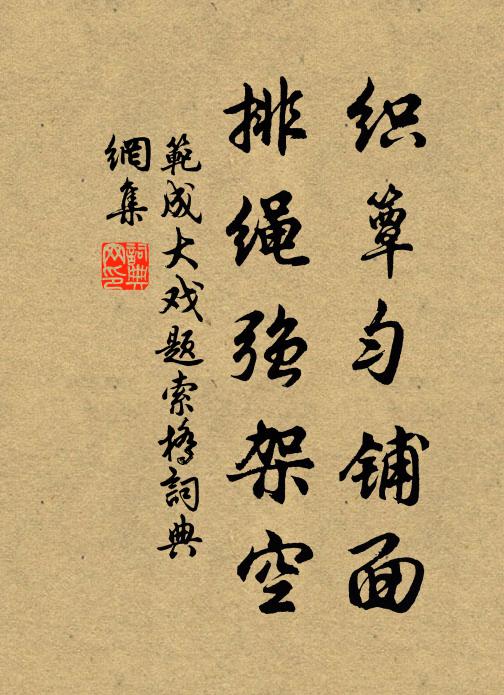 织簟匀铺面
排绳强架空
範成大戏题索桥詞典
網集
詞典
网印